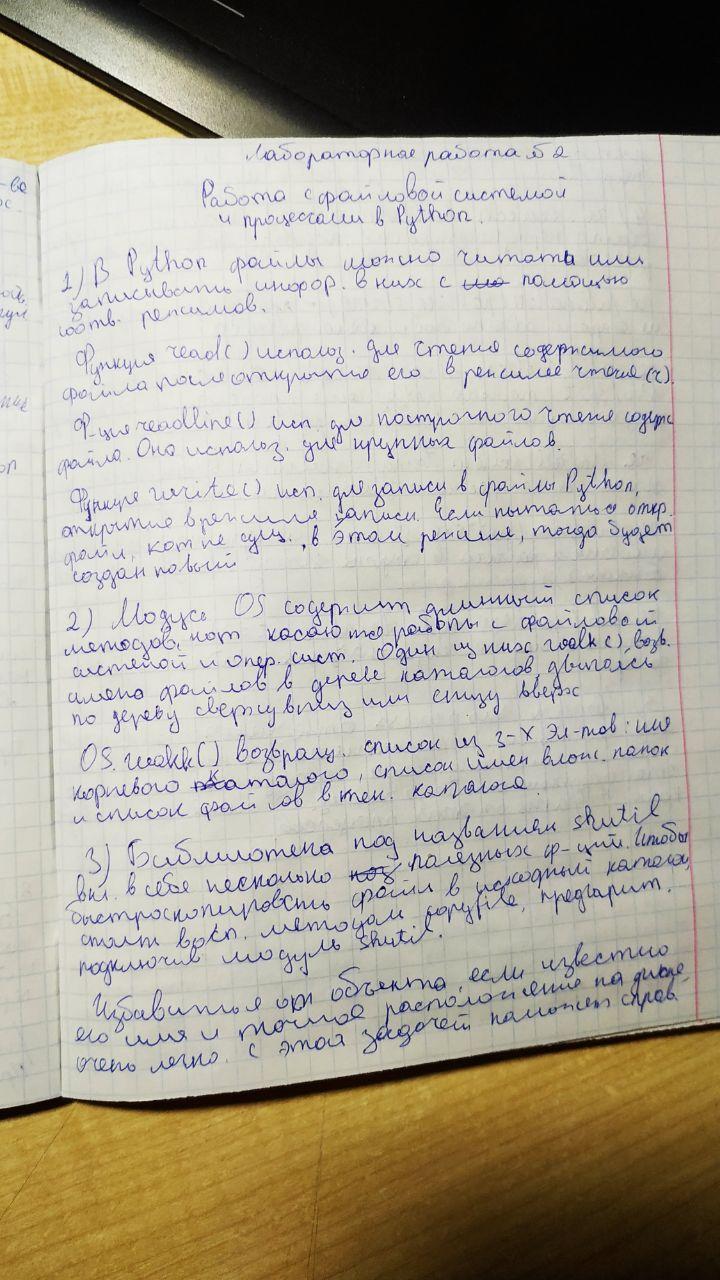 Лабораторная работа №2
Работа с файловой системой
и процессами в Python.
1) В Python файлы можно читать или
записывать инфор. в них с помощью
соотв. режимов.
Функция read() использ. для чтения содержимого
файла после открытия его в режиме чтения (r).
Ф-ция readline() исп. для построчного чтения содерж
файла. Она использ. для крупных файлов.
Функция write() исп. для записи в файлы Python,
открытые в режиме записи. Если пытаться откр.
файл, кот не сущ., в этом режиме, тогда будет
создан новый
2) Модуль OS содержит длинный список
методов, кот касаются работы с файловой
системой и опер. сист. Один из них walk(), возв.
имена файлов в дереве каталогов, двигаясь
по дереву сверху вниз или снизу вверх
OS.walk() возвращ. список из 3-х эл-тов: имя
корневого каталога, список имен влож. папок
и список файлов в тек. каталоге.
3) Библиотека под названием shutil
вкл. в себе несколько полезных ф-ций. Чтобы
быстро скопировать файл в исходный каталог,
стоит восп. методом copyfile, предварит.
подключив модуль shutil.
Избавиться от объекта, если известно
его имя и точное расположение на диске
очень легко. С этой задачей поможет справ